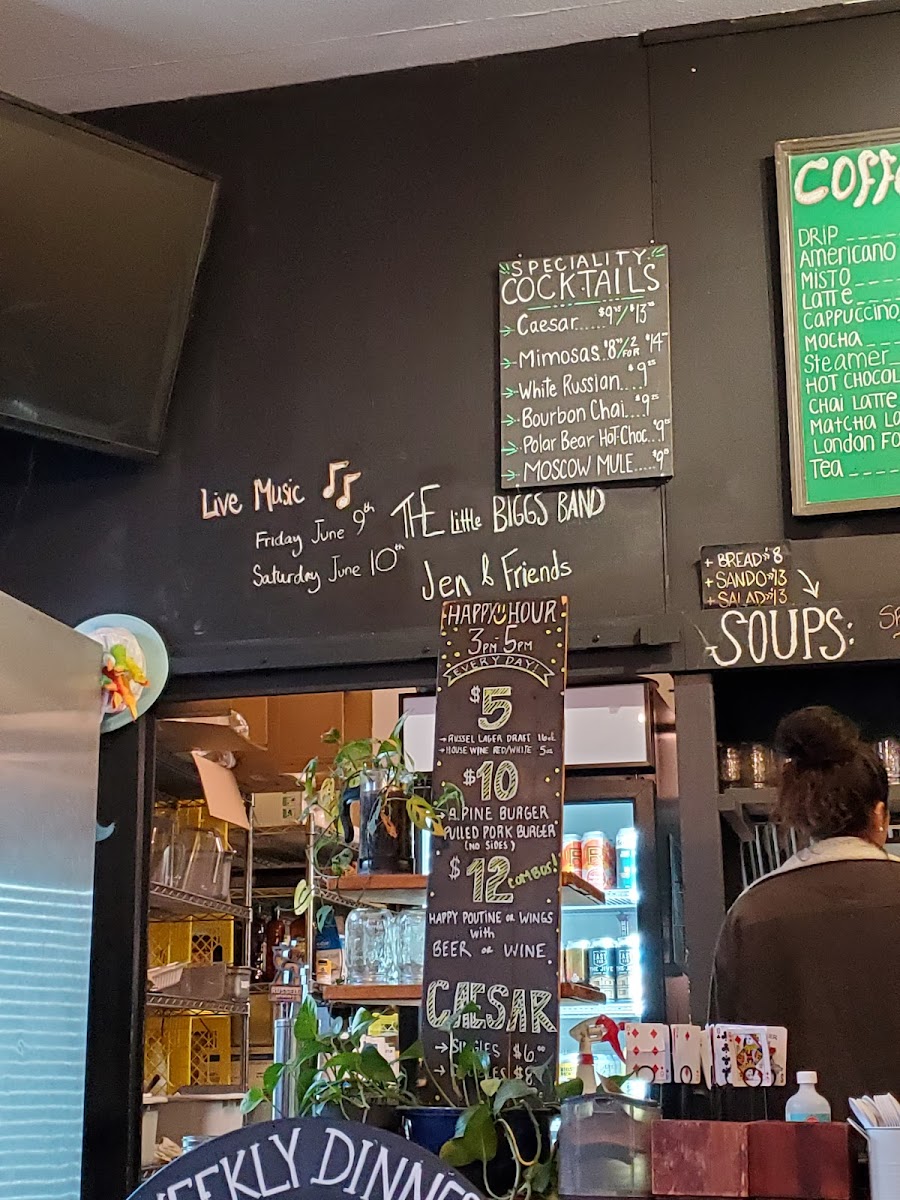 SPECIALITY
COCKTAILS
Caesar......$9⁰⁰/$13⁰⁰
Mimosas..$8⁰⁰/2 FOR $14⁰⁰
White Russian....$9⁰⁰
Bourbon Chai...$9⁰⁰
Polar Bear HoT Choc..$9⁰⁰
MOSCOW MULE.....$9⁰⁰
COFF
DRIP
Americano
MISTO
Latte
CAPPUCCINO
MOCHA
Steamer
HOT CHOCOL
CHAI LATTE
MATCHA LA
London Fo
Tea
Live Music
Friday June 9th THE Little BIGGS BAND
Saturday June 10th Jen & Friends
+ BREAD $8
+ SANDO $13
+ SALAD $13
SOUPS:
HAPPY HOUR
3PM-5PM
EVERY DAY!
$5
→ RUSSEL LAGER DRAFT 16oz
→ HOUSE WINE RED/WHITE 5oz
$10
→ ALPINE BURGER
PULLED PORK BURGER
(NO SIDES)
$12 COMBOS!
HAPPY POUTINE OR WINGS
with
BEER OR WINE
CAESAR
→ SINGLES $6.00
→ $8
WEEKLY DINNE